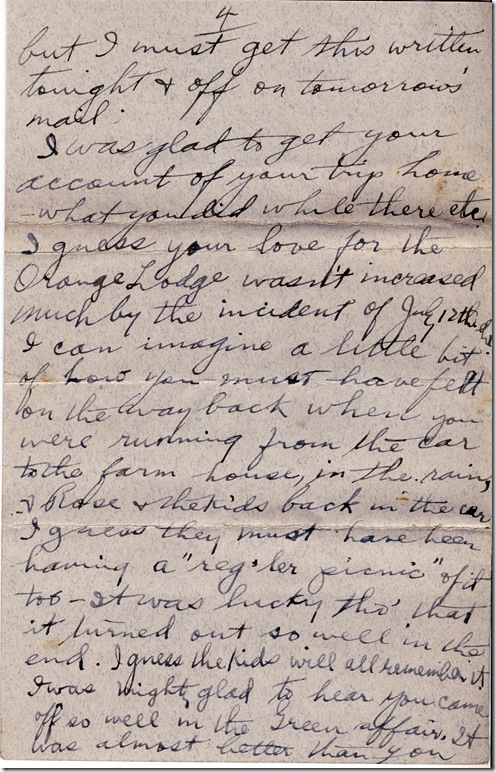 4
but I must get this written
tonight & off on tomorrow's
mail.
I was glad to get your
account of your trip home
- what you did while there etc.
I guess your love for the
Orange Lodge wasn't increased
much by the incident of July 12th
I can imagine a little bit
of how you must have felt
on the way back when you
were running from the car
to the farm house, in the rain,
& Rose & the kids back in the car
I guess they must have been
having a "reg'ler picnic" of it
too - It was lucky tho' that
it turned out so well in the
end. I guess the kids will all remember it
I was mighty glad to hear you came
off so well in the Green affair. It
was almost better than you